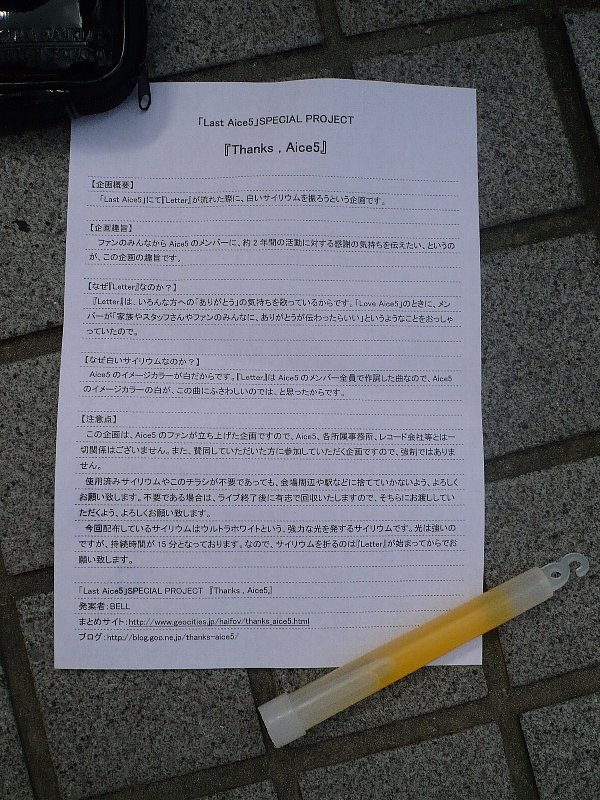 「Last Aice5」SPECIAL PROJECT
『Thanks , Aice5』
【企画概要】
「Last Aice5」にて『Letter』が流れた際に、白いサイリウムを振ろうという企画です。
【企画趣旨】
ファンのみんなから Aice5 のメンバーに、約 2 年間の活動に対する感謝の気持ちを伝えたい、というの
が、この企画の趣旨です。
【なぜ『Letter』なのか？】
『Letter』は、いろんな方への「ありがとう」の気持を歌っているからです。「Love Aice5」のときに、メン
バーが「家族やスタッフさんやファンのみんなに、ありがとうが伝わったらいい」というようなことをおっしゃ
っていたので。
【なぜ白いサイリウムなのか？】
Aice5 のイメージカラーが白だからです。『Letter』は Aice5 のメンバー全員で作詞した曲なので、Aice5
のイメージカラーの白が、この曲にふさわしいのでは、と思ったからです。
【注意点】
この企画は、Aice5 のファンが立ち上げた企画ですので、Aice5、各所属事務所、レコード会社等とは一
切関係はございません。また、賛同していただいた方に参加していただく企画ですので、強制ではありま
せん。
使用済みサイリウムやこのチラシが不要であっても、会場周辺や駅などに捨てていかないよう、よろしく
お願い致します。不要である場合は、ライブ終了後に有志で回収いたしますので、そちらにお渡ししてい
ただくよう、よろしくお願い致します。
今回配布しているサイリウムはウルトラホワイトという、強力な光を発するサイリウムです。光は強いの
ですが、持続時間が 15 分となっております。なので、サイリウムを折るのは『Letter』が始まってからでお
願い致します。
「Last Aice5」SPECIAL PROJECT 『Thanks , Aice5』
発案者：BELL
まとめサイト：http://www.geocities.jp/halfov/thanks_aice5.html
ブログ：http://blog.goo.ne.jp/thanks-aice5/